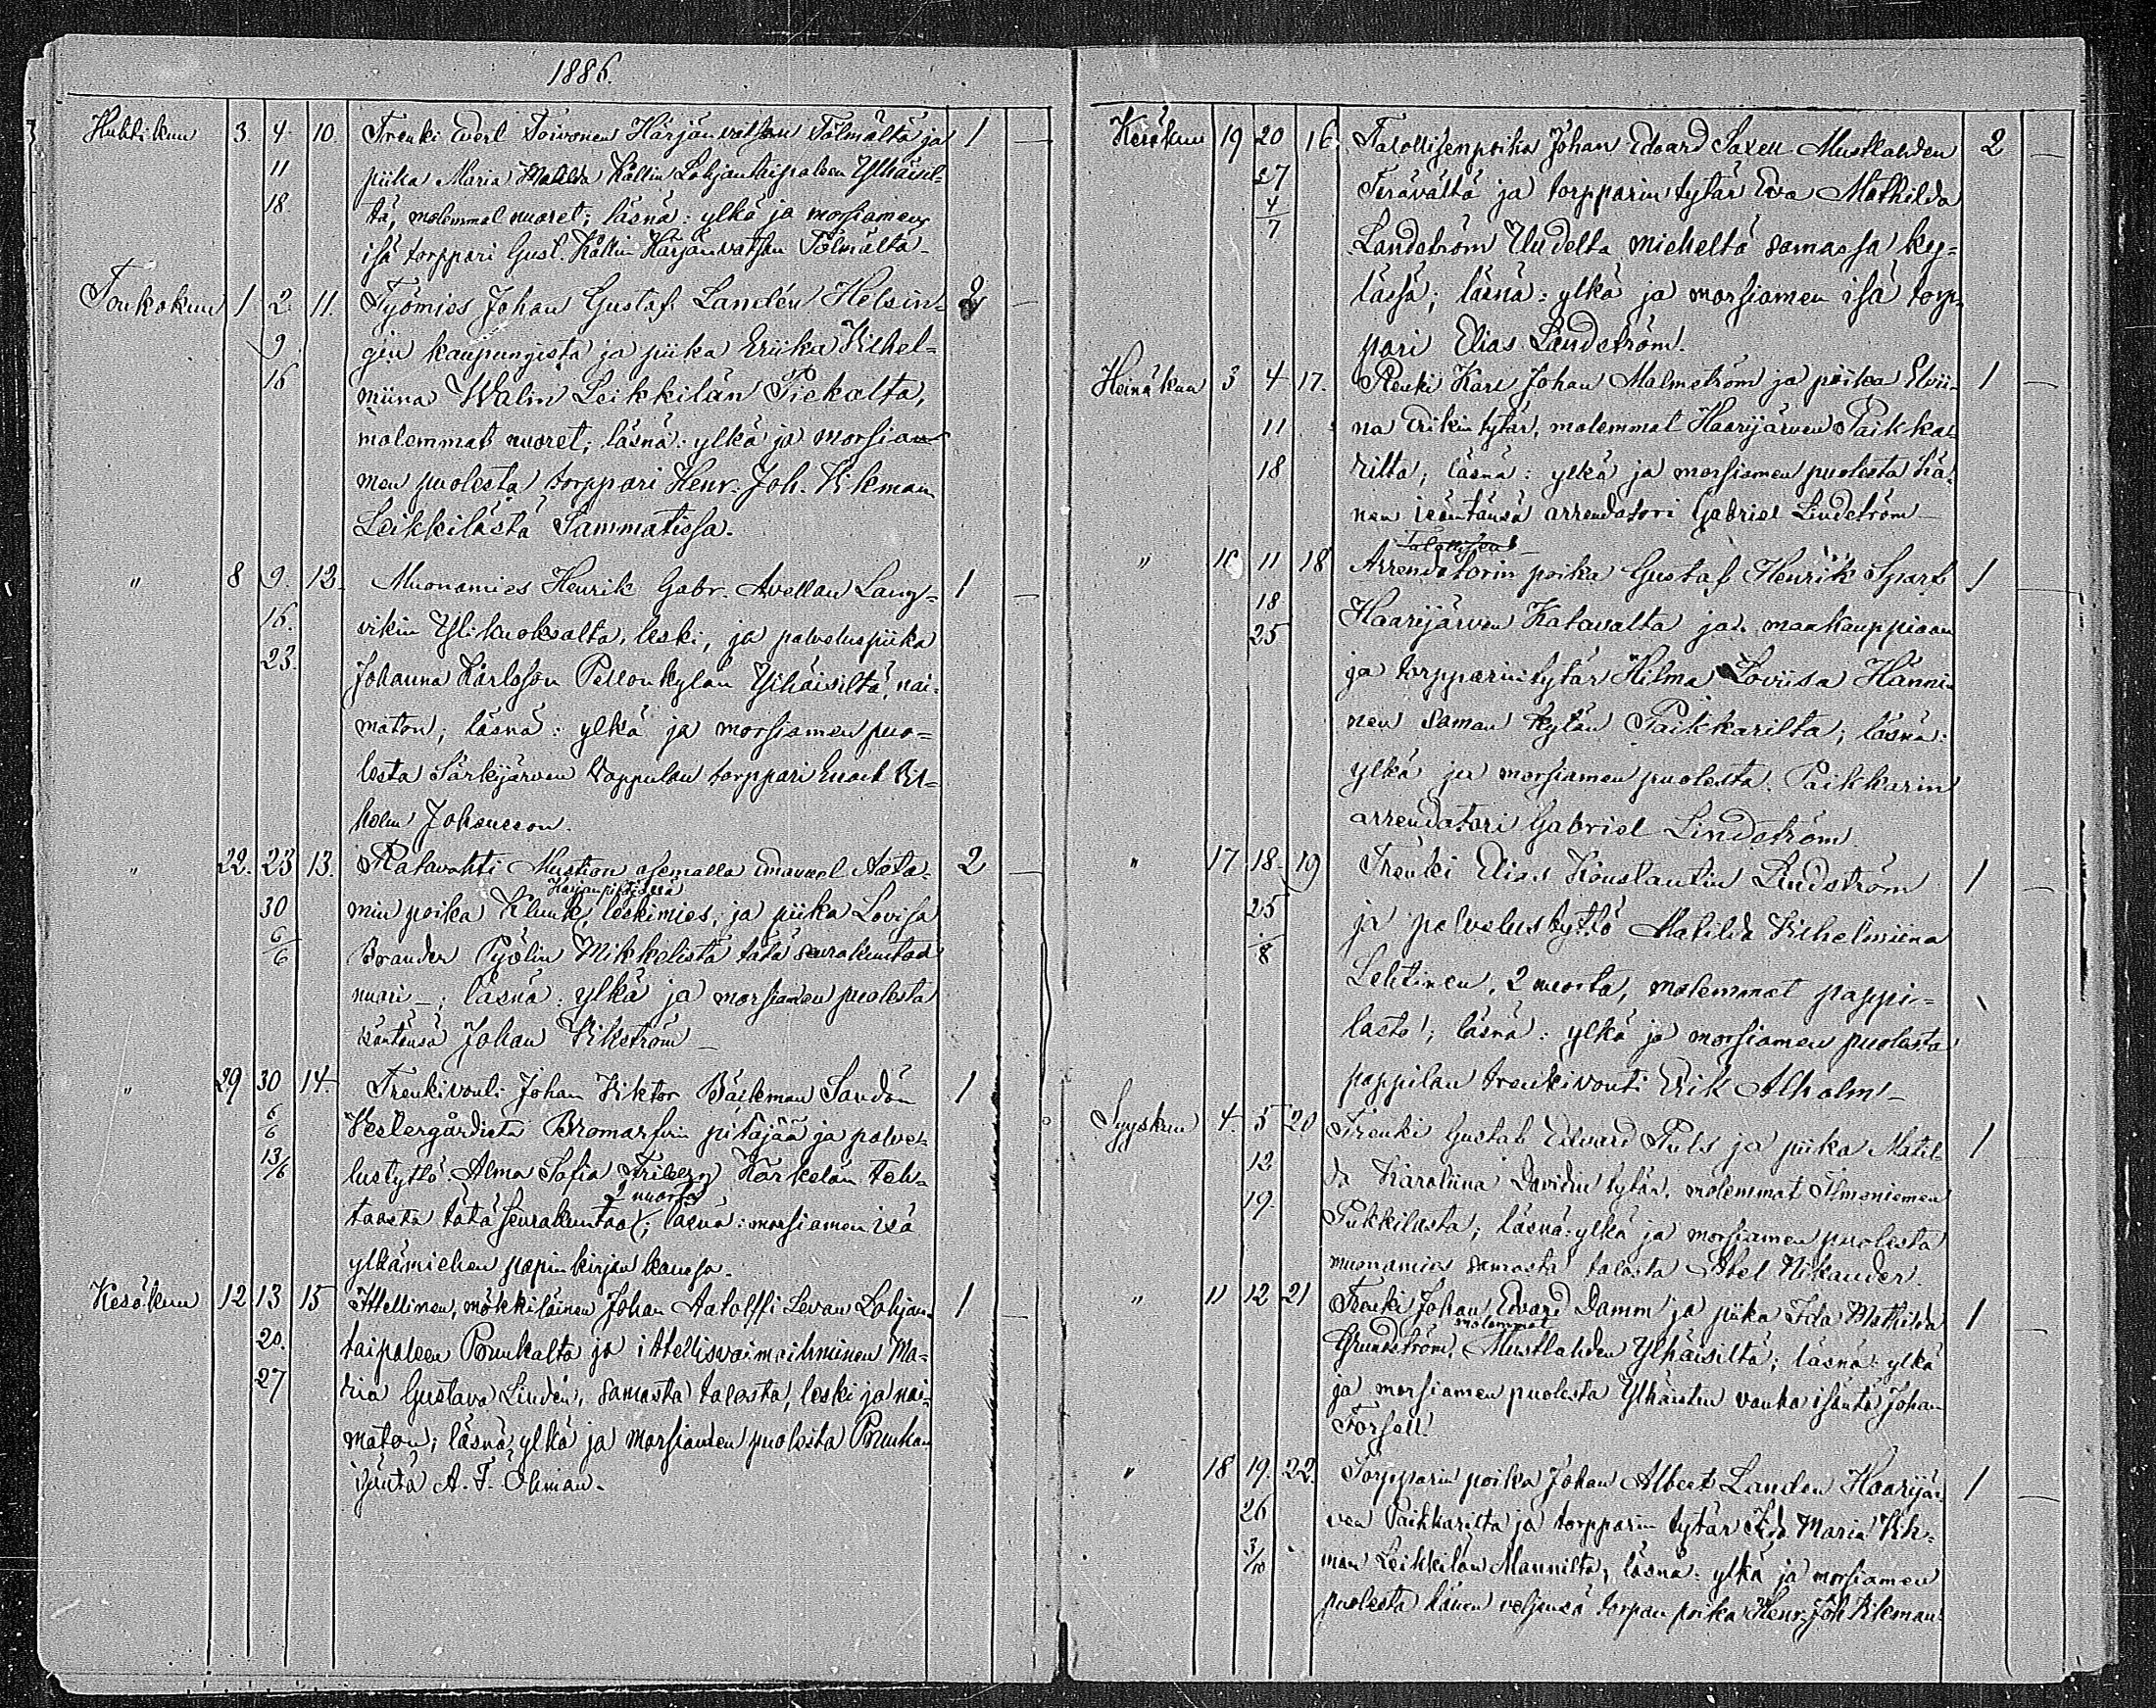 1886.
Huhtikuu 3. 4. 10. Trenki Everl Toivonen Härjänvatsan Tölmältä ja 1 —
11 piika Maria Matilda Kállin Lohjantaipaleen Ylhäisil-
18. tä, molemmat nuoret; läsnä: ylkä ja morsiamen
isä torppari Gust. Kállin Härjänvatsan Tölmältä —
Toukokuu 1 2 11. Työmies Johan Gustaf Landén Helsin- 2 —
9 gin kaupungista ja piika Eriika Vilhel-
16 miina Walin Leikkilän Piekalta,
molemmat nuoret; läsnä: ylkä ja morsia-
men puolesta torppari Henr. Joh. Vikman
Leikkilästä Sammatissa.
" 8 9. 12. Muonamies Henrik Gabr. Avellan Lang- 1 —
16. vikin Ylikuoksalta, leski, ja palveluspiika
23. Johanna Karlsson Pellonkylän Ylhäisiltä, nai-
maton; läsnä: ylkä ja morsiamen puo-
lesta Särkijärven Vappulan torppari Enock Vil-
helm Johansson.
" 22. 23 13. Ratavahti Mustion asemalla Emanuel Aata- 2 —
Karjan pitäjässä
30 min poika Klunk, leskimies, ja piika Lovisa
6/6 Brander Pyölin Mikkelistä tätä seurakuntaa
nuori —; läsnä: ylkä ja morsiamen puolesta
isäntänsä Johan Vikström —
" 29 30 14. Trenkivouti Johan Viktor Bäckman Sandön 1
6/6 Vestergårdista Bromarfvin pitäjää ja palve-
13/6 lustyttö Alma Sofia Friberg Kärkelän teh-
2 nuorta
taasta tätä seurakuntaa; läsnä: morsiamen isä
ylkämiehen papinkirjan kanssa.
Kesäkuu 12 13 15 Itsellinen, mökkiläinen Johan Aatolffi Levan Lohjan- 1 —
20. taipaleen Brunkalta ja itsellisvaimoihminen Ma-
27 ria Gustava Lindén, samasta talosta, leski ja nai-
maton; läsnä, ylkä ja morsiamen puolesta Brunkan
isäntä A. F. Öhman.
Kesäkuu 19 20 16. Talollisenpoika Johan Edvard Saxen Mustlahden 2 —
27 Terävältä ja torpparin tytär Eva Mathilda
4/7 Landström Uudelta mieheltä samassa ky-
lässä; läsnä: ylkä ja morsiamen isä torp-
pari Elias Landström.
Heinäkuu 3 4 17. Renki Karl Johan Malmström ja piika Elvii- 1 —
11 na Erikin tytär, molemmat Haarijärven Paikka-
18 rilta; läsnä: ylkä ja morsiamen puolesta hä-
nen isäntänsä arrendatori Gabriel Lindström —
Talollisen
" 10 11 18 Arrendatorin poika Gustaf Henrik Sparf 1 —
18 Haarijärven Katavalta ja maakauppiaan
25 ja torpparintytär Hilma Loviisa Hänni-
nen saman kylän Paikkarilta; läsnä:
ylkä ja morsiamen puolesta Paikkarin
arrendatori Gabriel Lindström.
" 17 18 19 Trenki Elias Konstantin Lindström 1 —
25 ja palvelustyttö Matilda Vilhelmiina
1/8 Lehtinen, 2 nuorta, molemmat pappi-
lasta; läsnä: ylkä ja morsiamen puolesta
pappilan trenkivouti Erik Alholm —
Syyskuu 4. 5 20 Trenki Gustaf Edvard Puls ja piika Matil- 1
12 da Karoliina Davidin tytär, molemmat Ilmoniemen
19. Pukkilasta; läsnä: ylkä ja morsiamen puolesta
muonamies samasta talosta Abel Nikander.
" 11 12 21 Trenki Johan Edvard Damm ja piika Ida Mathilda 1 —
molemmat
Grundström, Mustlahden Ylhäisiltä; läsnä: ylkä
ja morsiamen puolesta Ylhäisten vanha isäntä Johan
Forsell.
" 18 19. 22. Torpparin poika Johan Albert Landen Haarijär- 1 —
26 ven Paikkarilta ja torpparin tytär Ida Maria Vik-
3/10 man Leikkilän Mannilta; läsnä: ylkä ja morsiamen
puolesta hänen veljensä torpan poika Henr. Joh. Vikman